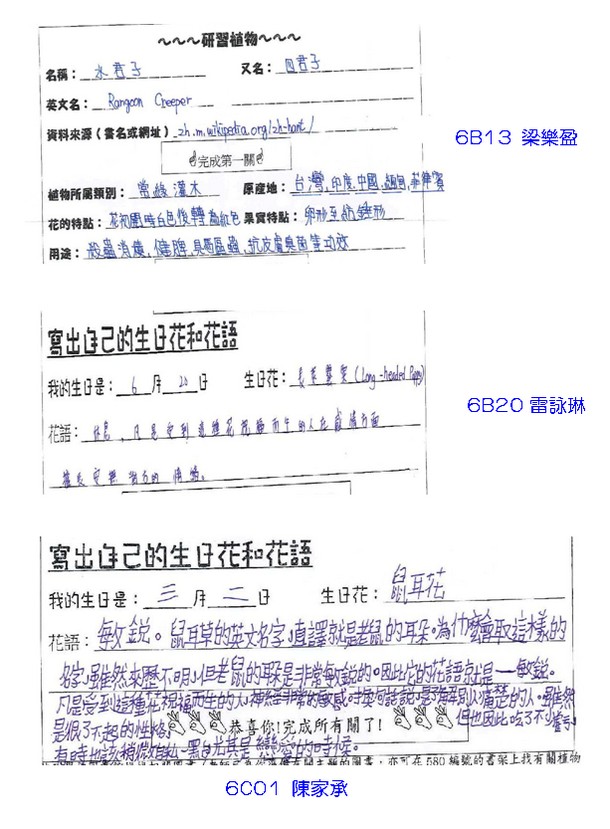 ～～～研習植物～～～
名稱： 水君子 又名： 四君子
英文名： Rangoon Creeper
資料來源（書名或網址） zh.m.wikipedia.org/zh-hant/
完成第一關
植物所屬類別： 常綠灌木 原產地： 台灣,印度,中國,緬甸,菲律賓
花的特點： 花初開時白色後轉為紅色 果實特點： 卵形至紡錘形
用途： 殺蟲消積,健脾,具驅蟲,抗皮膚真菌等功效
6B13 梁樂盈
寫出自己的生日花和花語
我的生日是： 6 月 20 日 生日花： (Long-headed Poppy)
花語： 凡是受到這種花祝福而生的人在感情方面
6B20 雷詠琳
寫出自己的生日花和花語
我的生日是： 三 月 二 日 生日花： 鼠耳花
花語： 敏銳。鼠耳草的英文名字,直譯就是老鼠的耳朵。為什麼會取這樣的
名字,雖然來歷不明,但老鼠的耳朵是非常敏銳的。因此它的花語就是—敏銳。
凡是受到這種花祝福而生的人,神經非常的敏感,
是很了不起的性格! 恭喜你!完成所有關了! 但也因此吃了不少
有時也該稍微自私、黑白尤其是戀愛的時候。
亦可在 580 編號的書架上找有關植物
6C01 陳家承